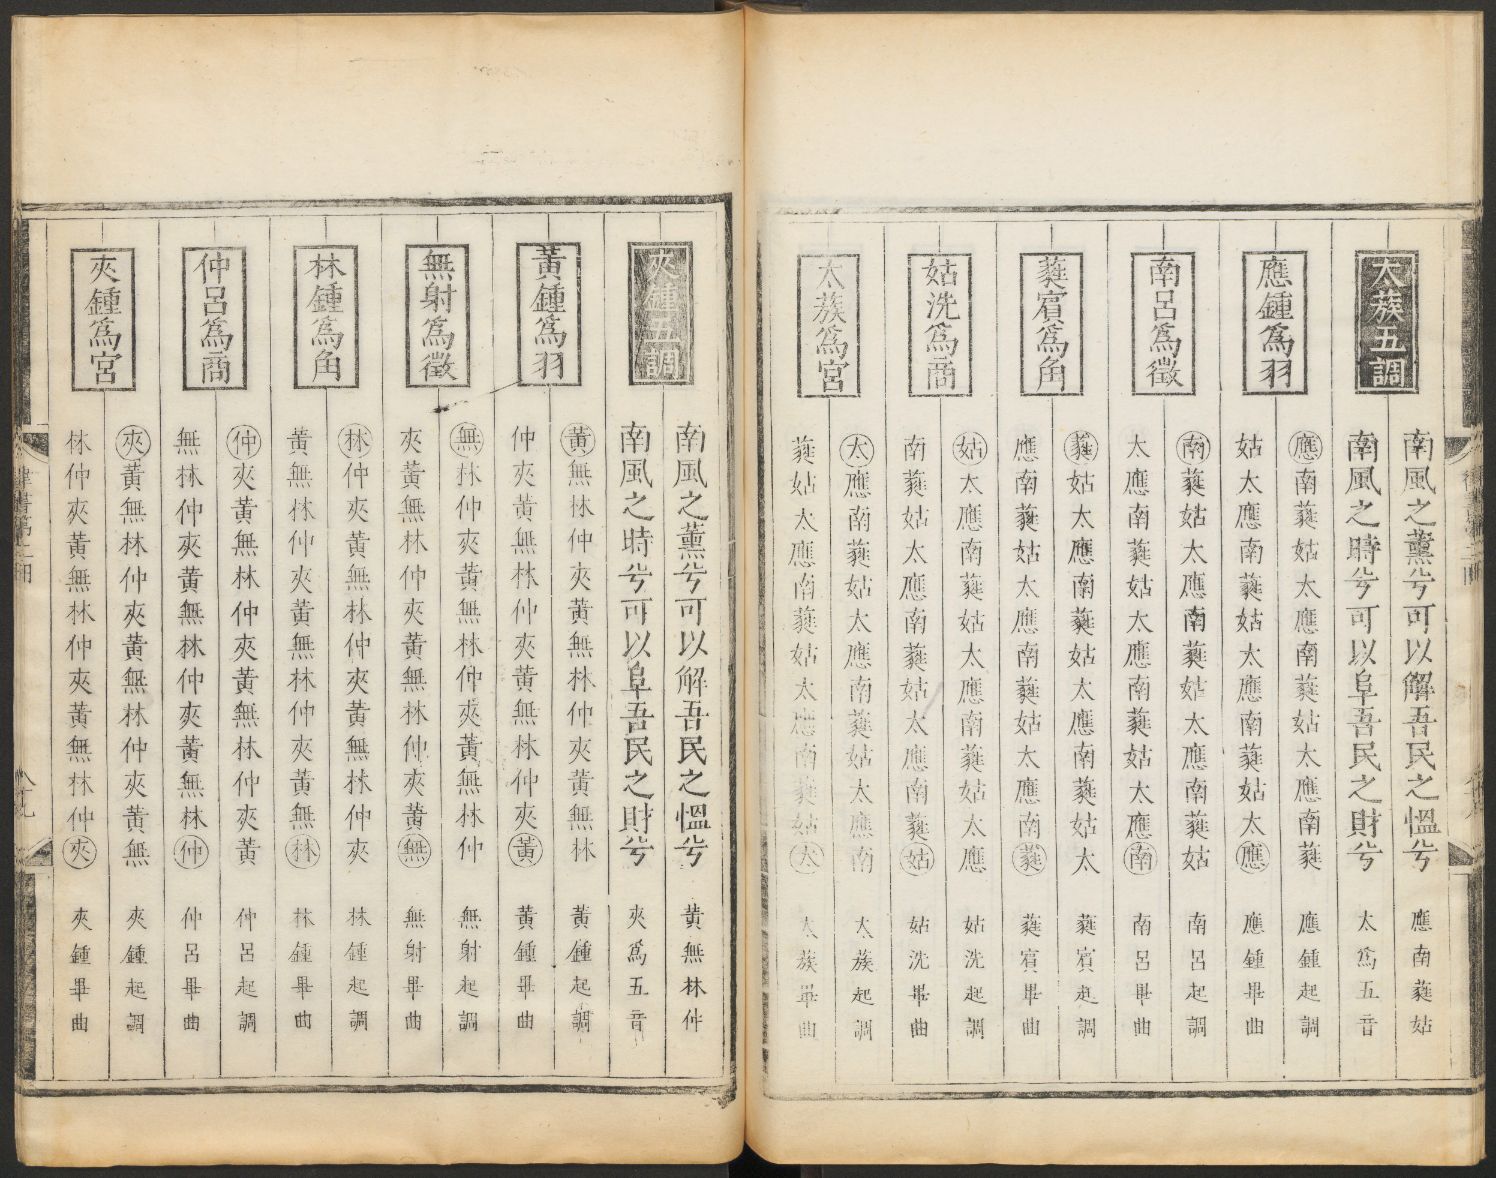 太蔟五調
南風之薰兮可以解吾民之慍兮 應南蕤姑
南風之時兮可以阜吾民之財兮 太爲五音
應鍾爲羽
應南蕤姑太應南蕤姑太應南蕤 應鍾起調
姑太應南蕤姑太應南蕤姑太應 應鍾畢曲
南呂爲徵
南蕤姑太應南蕤姑太應南蕤姑 南呂起調
太應南蕤姑太應南蕤姑太應南 南呂畢曲
蕤賓爲角
蕤姑太應南蕤姑太應南蕤姑太 蕤賓起調
應南蕤姑太應南蕤姑太應南蕤 蕤賓畢曲
姑洗爲商
姑太應南蕤姑太應南蕤姑太應 姑洗起調
南蕤姑太應南蕤姑太應南蕤姑 姑洗畢曲
太蔟爲宮
太應南蕤姑太應南蕤姑太應南 太蔟起調
蕤姑太應南蕤姑太應南蕤姑太 太蔟畢曲
夾鍾五調
南風之薰兮可以解吾民之慍兮 黃無林仲
南風之時兮可以阜吾民之財兮 夾爲五音
黃鍾爲羽
黃無林仲夾黃無林仲夾黃無林 黃鍾起調
仲夾黃無林仲夾黃無林仲夾黃 黃鍾畢曲
無射爲徵
無林仲夾黃無林仲夾黃無林仲 無射起調
夾黃無林仲夾黃無林仲夾黃無 無射畢曲
林鍾爲角
林仲夾黃無林仲夾黃無林仲夾 林鍾起調
黃無林仲夾黃無林仲夾黃無林 林鍾畢曲
仲呂爲商
仲夾黃無林仲夾黃無林仲夾黃 仲呂起調
無林仲夾黃無林仲夾黃無林仲 仲呂畢曲
夾鍾爲宮
夾黃無林仲夾黃無林仲夾黃無 夾鍾起調
林仲夾黃無林仲夾黃無林仲夾 夾鍾畢曲